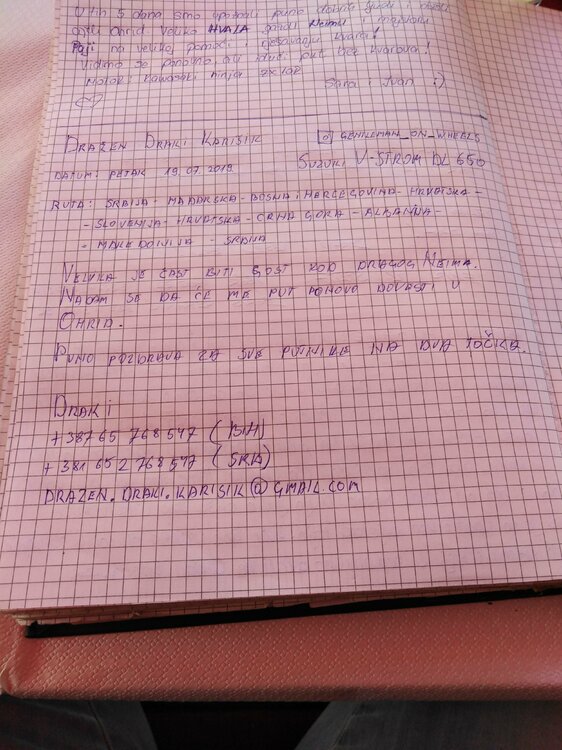 U tih 5 dana smo upoznali puno dobrih ljudi i
Ohrid. Veliko HVALA gazdi Neimu i majstoru
Paji na velikoj pomoći i rješavanju kvara!
Vidimo se ponovno, ali idući put bez kvarova!
Motor: Kawasaki ninja zx10r
Sara i Ivan :)
DRAŽEN DRAKI KARIŠIK
GENTLEMAN_ON_WHEELS
DATUM: PETAK 19.07.2019.
SUZUKI V-STROM DL 650
RUTA: SRBIJA - MAĐARSKA - BOSNA i HERCEGOVINA - HRVATSKA -
- SLOVENIJA - HRVATSKA - CRNA GORA - ALBANIJA -
- MAKEDONIJA - SRBIJA
VELIKA JE ČAST BITI GOST KOD DRAGOG NEIMA.
NADAM SE DA ĆE ME PUT PONOVO DOVESTI U
OHRID.
PUNO POZDRAVA ZA SVE PUTNIKE NA DVA TOČKA.
DRAKI
+387 65 768 547 (BIH)
+381 65 2 768 547 (SRB)
DRAZEN.DRAKI.KARISIK@GMAIL.COM